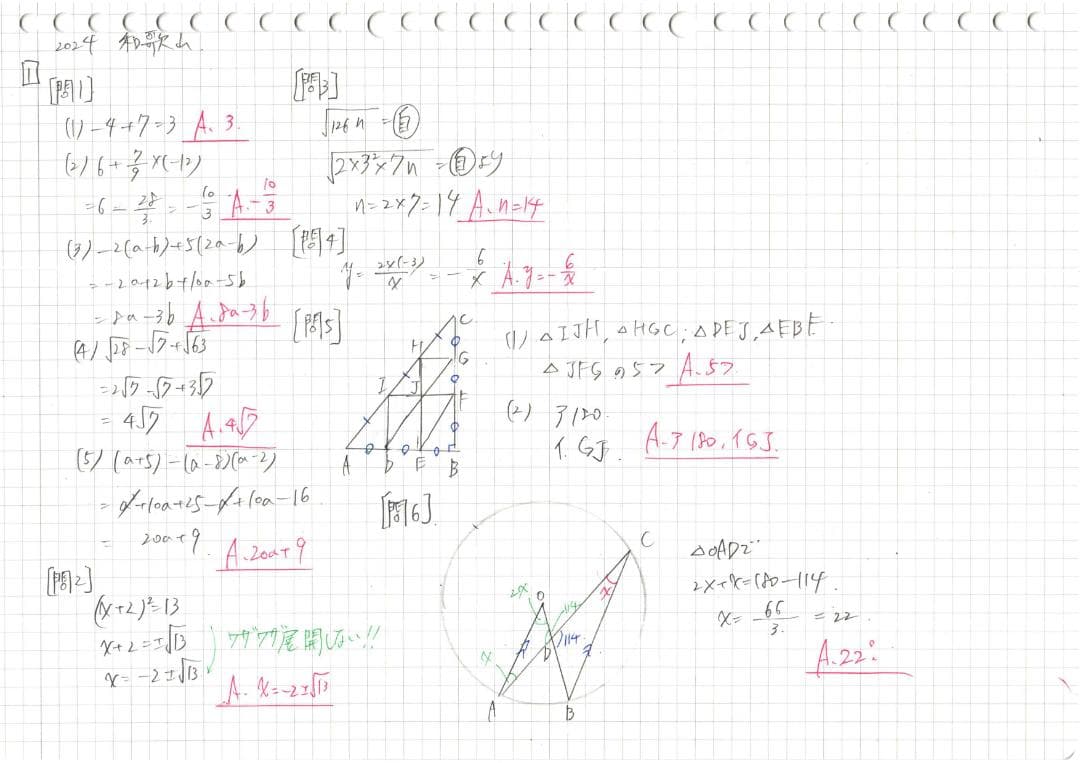 2024 和歌山
1
[問1]
(1) -4+7=3 A. 3.
(2) 6+7/9×(-12)
=6-28/3=-10/3 A.-10/3
(3) -2(a-b)+5(2a-b)
=-2a+2b+10a-5b
=8a-3b A.8a-3b
(4) √28-√7+√63
=2√7-√7+3√7
=4√7 A.4√7
(5) (a+5)-(a-8)(a-2)
=a²+10a+25-a²+10a-16
= 20a+9. A.20a+9
[問2]
(x+2)²=13
x+2=±√13
x=-2±√13
ワザワザ展開しない!!
A. x=-2±√13
[問3]
√126n=自
√2×3²×7n=自より
n=2×7=14 A. n=14
[問4]
y=2×(-3)/x=-6/x A.y=-6/x
[問5]
C
H
G
I
J
F
A
D
E
B
(1) △IJH, △HGC, △DEJ, △EBF
△JFGの5つ A.5つ
(2) ア180.
イ. GJ. A.ア180,イGJ.
[問6]
C
O
2x
x
114
114
D
x
A
B
△OADで
2x+x=180-114
x=66/3=22
A.22°